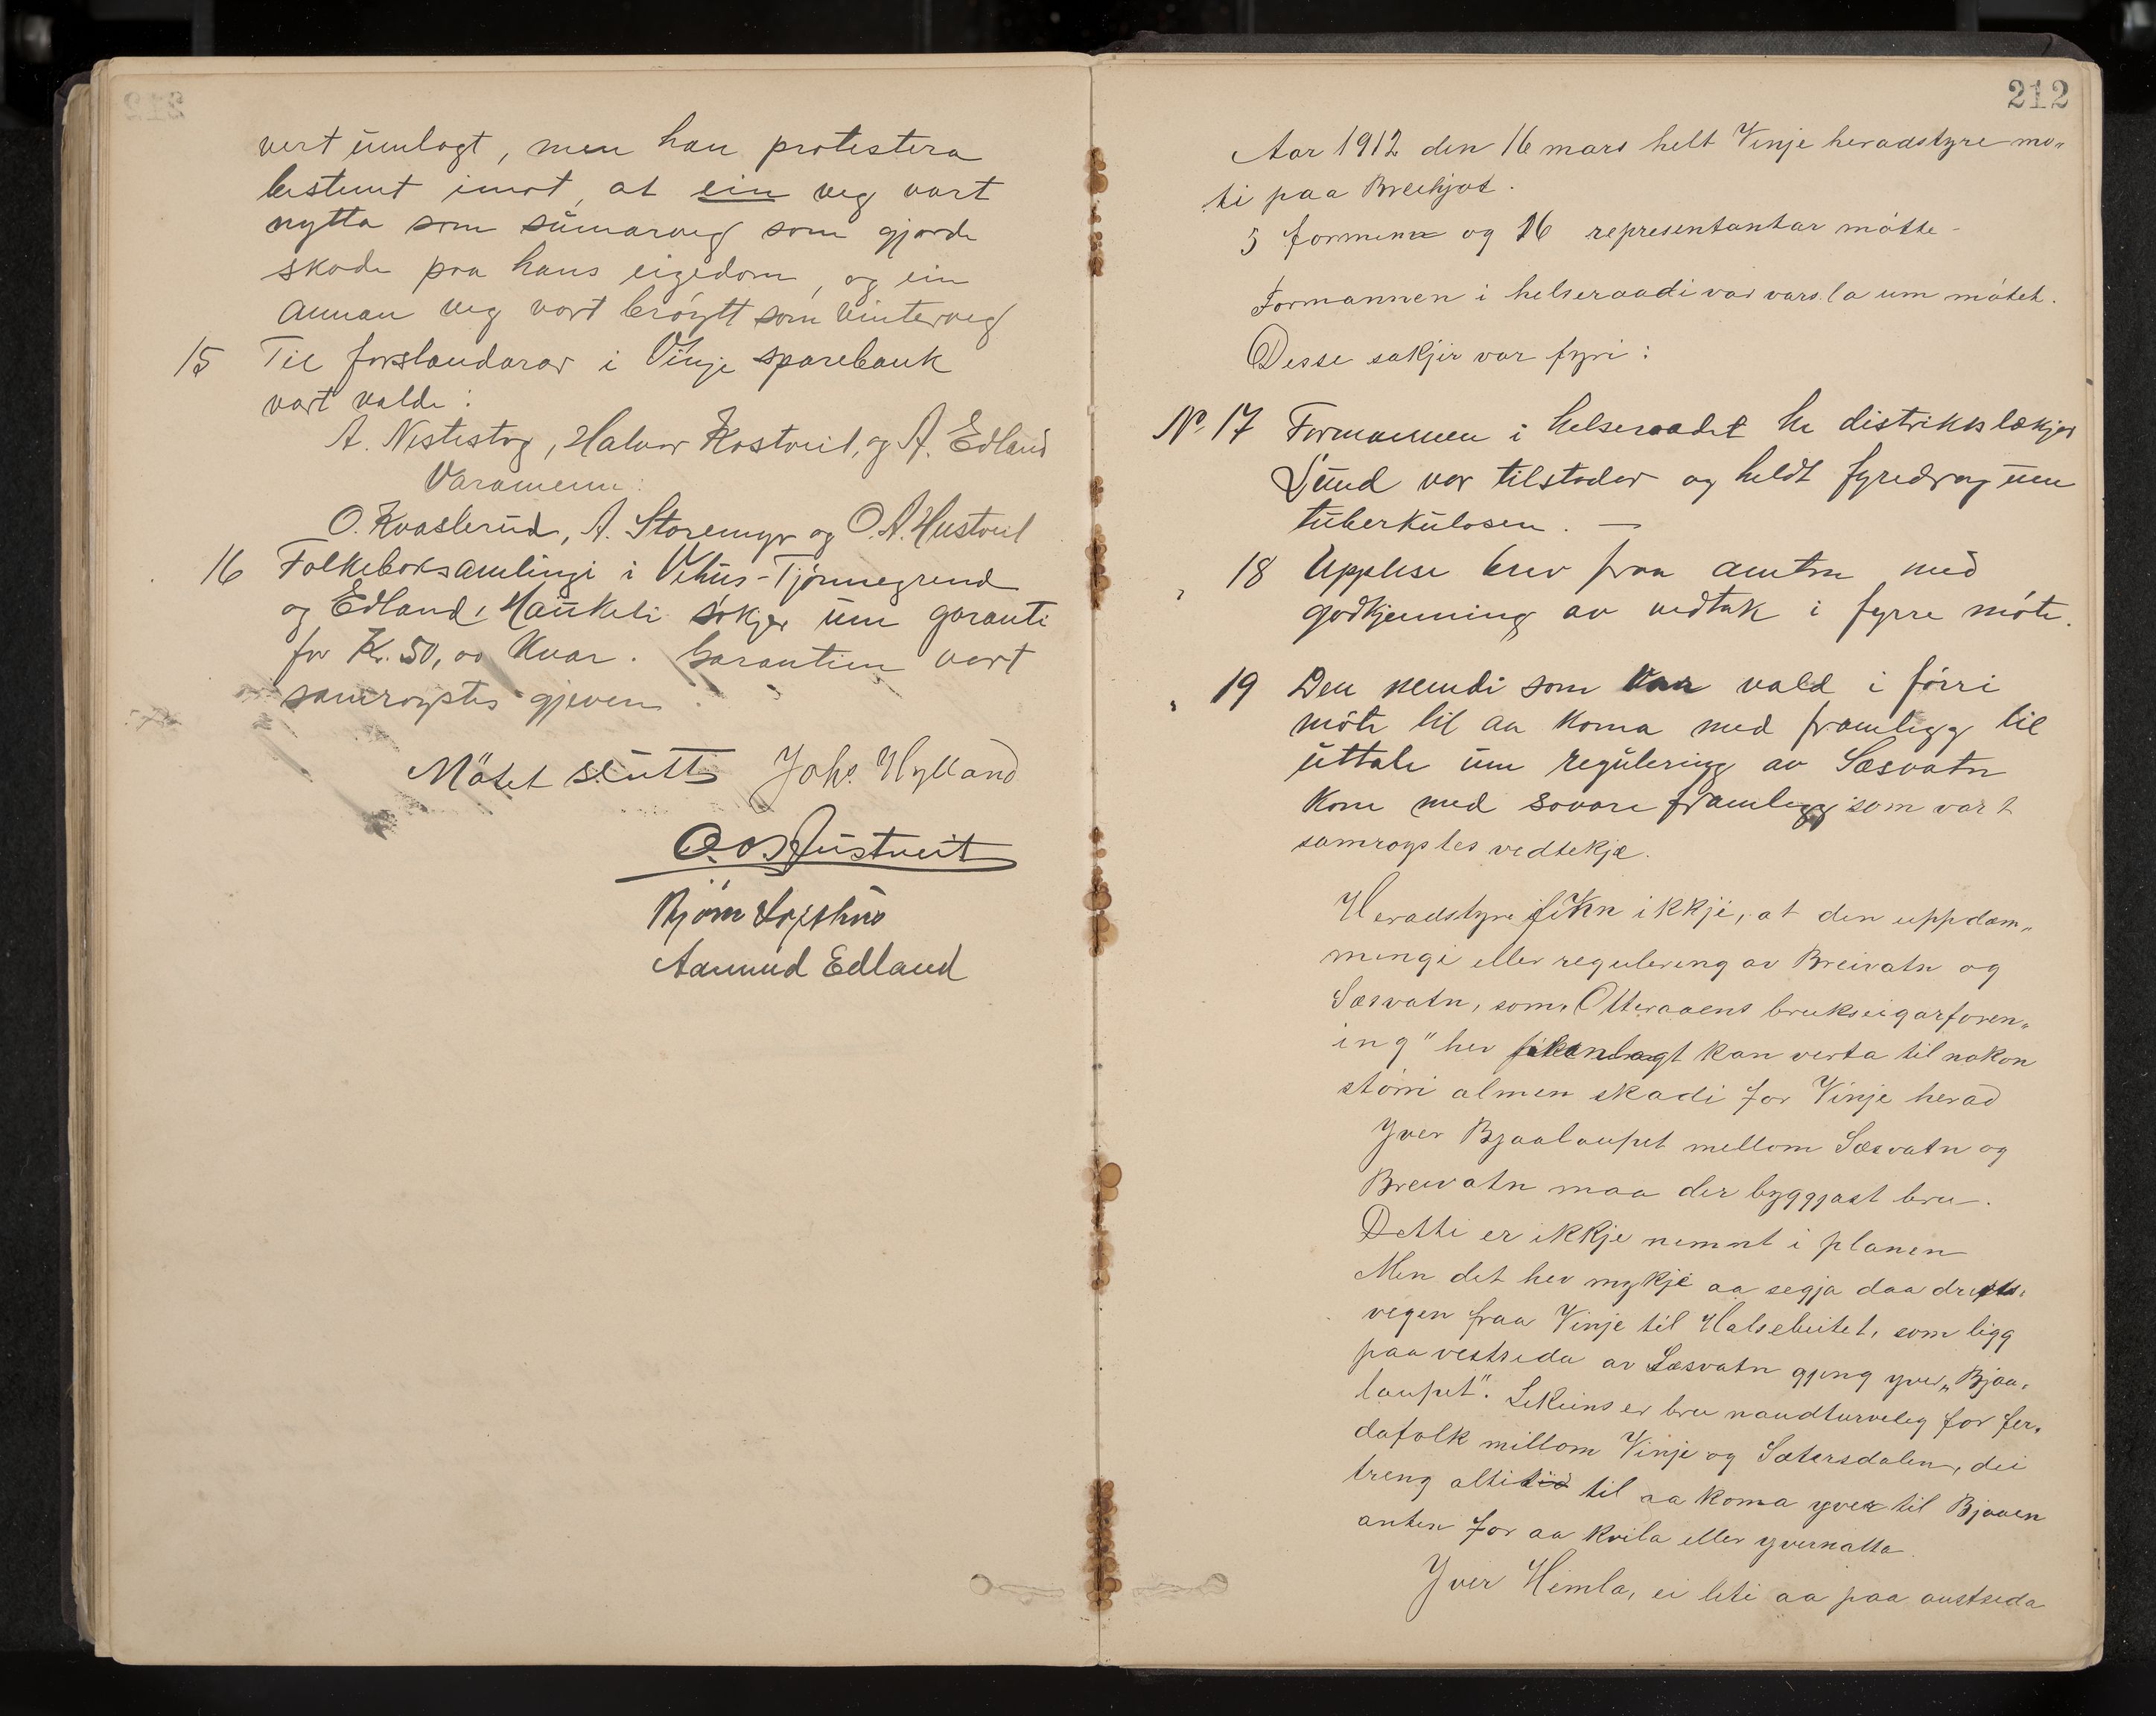 vert umlagt, men han protestera
bestemt imot, at ein veg vart
nytta som sumarveg som gjorde
skade paa hans eigedom, og ein
annan veg vart brøytt som vinterveg
15 Til forstandarar i Vinje sparebank
vart valde:
A. Nestestog, Halvor Kostveit, og A. Edland
Varamenn:
O. Kvaslerud, A. Storemyr og O. A. Hustveit
16 Folkeboksamlingi i Vehus-Tjønnegrend
og Edland, Haukeli søkjer um garanti
for Kr. 50,00 kvar. Garantien vart
samrøystes gjeven
Møtet slutt Johs. Hylland
O. O. Hustveit
Bjørn Lofthus
Aamund Edland
212
Aar 1912 den 16 mars helt Vinje heradstyre mø„
ti paa Breihjot.
5 formenn og 16 representantar møtte
Formannen i helseraadi var varsla um møtet.
Desse sakjir var fyri:
No. 17 Formannen i helseraadet hr distriktslækjar
Lund var tilstadar og heldt fyredrag um
tuberkulosen. —
„ 18 Upplese brev fraa amtm med
godkjenning av vedtak i fyrre møte.
„ 19 Den nemdi som var vald i førri
møte til aa koma med framlegg til
uttale um regulering av Sæsvatn
kom med sovore framlegg som vart
samrøystes vedtekje.
Heradstyre fikn ikkje, at den uppdæm„
mingi eller regulering av Breivatn og
Sæsvatn, som „Otteraaens brukseigarforen„
ing" hev planlagt kan verta til nokon
størri almen skadi for Vinje herad
Yver Bjaalaupet mellom Sæsvatn og
Breivatn maa der byggjast bru.
Detti er ikkje nemnt i planen
Men det hev mykje aa segja daa drifts„
vegen fraa Vinje til Halsebeitet, som ligg
paa vestsida av Sæsvatn gjeng yver „Bjaa„
laupet". Likeins er bru naudturveleg for fer„
dafolk millom Vinje og Sætersdalen, dei
treng altid til aa koma yver til Bjaaen
anten for aa kvila eller yvernatta
Yver Himla, ei liti aa paa austsida